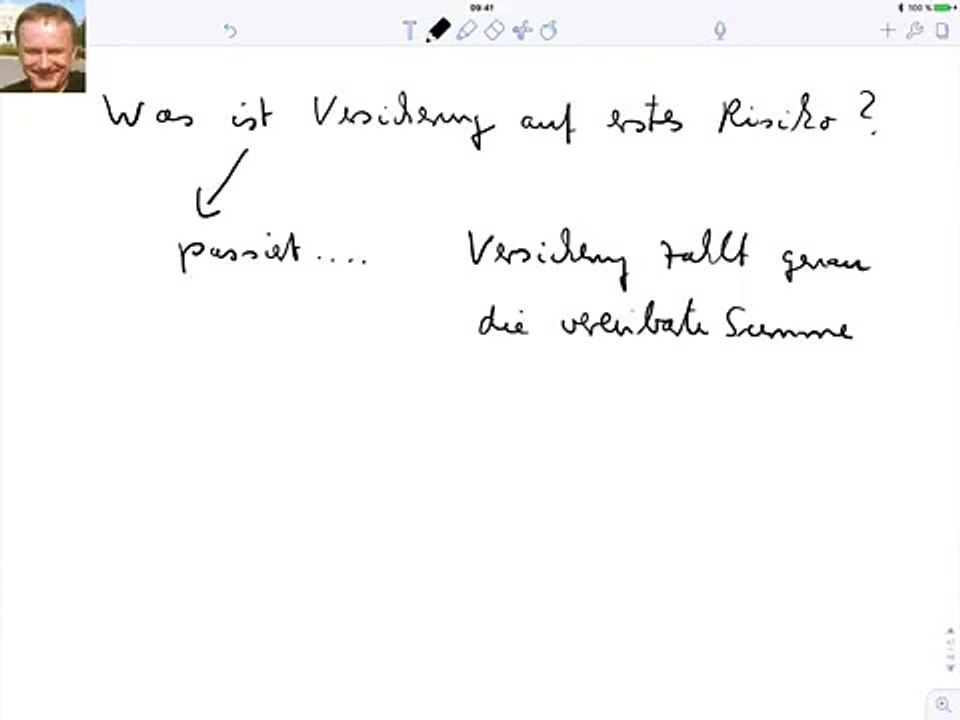 09:41
100 %
T
Was ist Versicherung auf erstes Risiko?
passiert .... Versicherung zahlt genau
die vereinbarte Summe